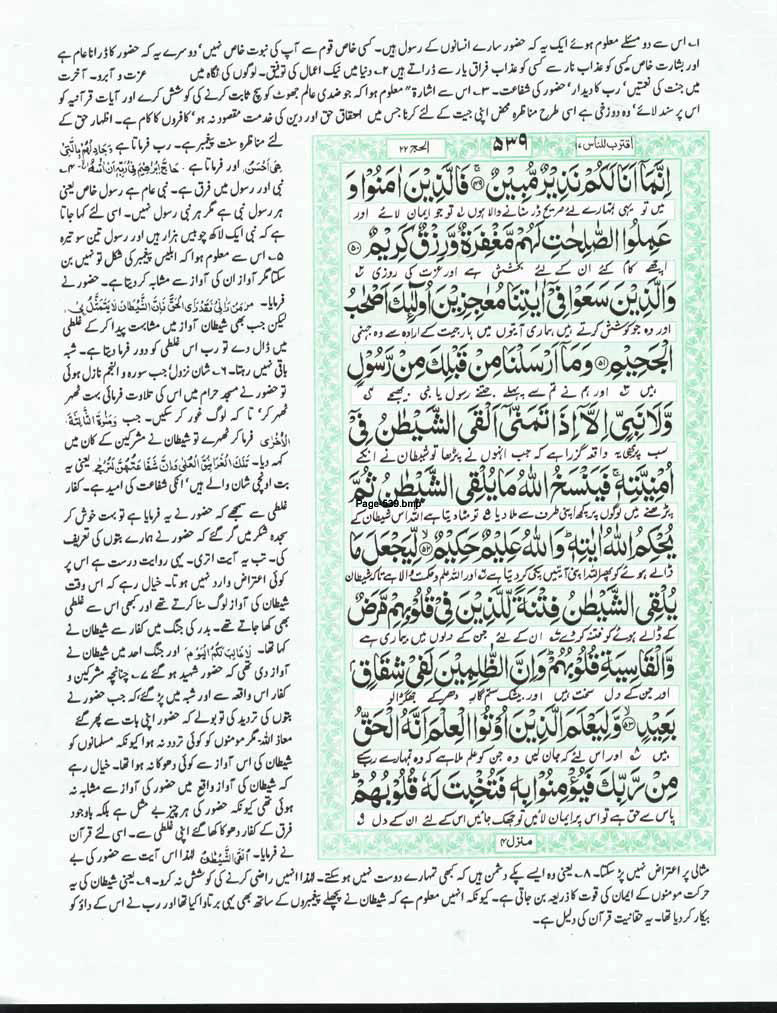 ۱۔ اس سے دو مسئلے معلوم ہوئے ایک یہ کہ حضور سارے انسانوں کے رسول ہیں۔ کسی خاص قوم سے آپ کی نبوت خاص نہیں' دوسرے یہ کہ حضور کا ڈرانا عام ہے
اور بشارت خاص کیسی کو عذاب نار سے کسی کو عذاب فراق یار سے ڈراتے ہیں ۲۔ دنیا میں نیک اعمال کی توفیق۔ لوگوں کی نگاہ میں عزت و آبرو۔ آخرت
میں جنت کی نعمتیں' رب کا دیدار' حضور کی شفاعت۔ ۳۔ اس سے اشارۃ" معلوم ہوا کہ جو ضدی عالم جھوٹ کو سچ ثابت کرنے کی کوشش کرے اور آیات قرآنیہ کو
اس پر سند لائے' وہ دوزخی ہے اسی طرح مناظرہ محض اپنی جیت کے لئے کرنا جس میں احقاق حق اور دین کی خدمت مقصود نہ ہو' کافروں کا کام ہے۔ اظہار حق کے
اقترب للناس ۱۷
۵۳۹
الحج ۲۲
اِنَّمَاۤ اَنَا لَكُمْ نَذِیْرٌ مُّبِیْنٌ ۚ﴿۴۹﴾ فَالَّذِیْنَ اٰمَنُوْا وَ
میں تو یہی تمہارے لئے صریح ڈر سنانے والا ہوں تو جو ایمان لائے اور
عَمِلُوا الصّٰلِحٰتِ لَهُمْ مَّغْفِرَةٌ وَّرِزْقٌ كَرِیْمٌ ﴿۵۰﴾
اچھے کام کئے ان کے لئے بخشش ہے اور عزت کی روزی
وَالَّذِیْنَ سَعَوْا فِیْۤ اٰیٰتِنَا مُعٰجِزِیْنَ اُولٰٓئِكَ اَصْحٰبُ
اور وہ جو کوشش کرتے ہیں ہماری آیتوں میں ہار جیت کے ارادہ سے وہ جہنمی
الْجَحِیْمِ ﴿۵۱﴾ وَمَاۤ اَرْسَلْنَا مِنْ قَبْلِكَ مِنْ رَّسُوْلٍ
ہیں اور ہم نے تم سے پہلے جتنے رسول یا نبی بھیجے
وَّلَا نَبِیٍّ اِلَّاۤ اِذَا تَمَنّٰۤی اَلْقَی الشَّیْطٰنُ فِیْۤ
سب پر کبھی یہ واقعہ گزرا ہے کہ جب انہوں نے پڑھا تو شیطان نے انکے
اُمْنِیَّتِهٖ ۚ فَیَنْسَخُ اللّٰهُ مَا یُلْقِی الشَّیْطٰنُ ثُمَّ
Page-539.bmp
پڑھنے میں لوگوں پر کچھ اپنی طرف سے ملا دیا تو مٹا دیتا ہے اللہ اس شیطان کے
یُحْكِمُ اللّٰهُ اٰیٰتِهٖ ؕ وَاللّٰهُ عَلِیْمٌ حَكِیْمٌ ﴿۵۲﴾ لِّیَجْعَلَ مَا
ڈالے ہوئے کو پھر اللہ اپنی آیتیں پکی کر دیتا ہے اور اللہ علم و حکمت والا ہے تاکہ شیطان
یُلْقِی الشَّیْطٰنُ فِتْنَةً لِّلَّذِیْنَ فِیْ قُلُوْبِهِمْ مَّرَضٌ
کے ڈالے ہوئے کو فتنہ کر دے ان کے لئے جن کے دلوں میں بیماری ہے
وَّالْقَاسِیَةِ قُلُوْبُهُمْ ؕ وَاِنَّ الظّٰلِمِیْنَ لَفِیْ شِقَاقٍۭ
اور جن کے دل سخت ہیں اور بیشک ستمگار دھر کے جھگڑالو
بَعِیْدٍ ﴿۵۳﴾ وَّلِیَعْلَمَ الَّذِیْنَ اُوْتُوا الْعِلْمَ اَنَّهُ الْحَقُّ
ہیں اور اس لئے کہ جان لیں وہ جن کو علم ملا ہے کہ وہ تمہارے رب کے
مِنْ رَّبِّكَ فَیُؤْمِنُوْا بِهٖ فَتُخْبِتَ لَهٗ قُلُوْبُهُمْ ؕ
پاس سے حق ہے تو اس پر ایمان لائیں تو جھک جائیں اس کے لئے ان کے دل
منزل ۴
لئے مناظرہ سنت پیغمبر ہے۔ رب فرماتا ہے وَجَادِلْهُمْ بِالَّتِیْ
هِیَ اَحْسَنُ۔ اور فرماتا ہے حَآجَّ اِبْرٰهٖمَ فِیْ رَبِّهٖۤ اَنْ اٰتٰىهُ اللّٰهُ ۴۔
نبی اور رسول میں فرق ہے۔ نبی عام ہے رسول خاص یعنی
ہر رسول نبی ہے مگر ہر نبی رسول نہیں۔ اسی لئے کہا جاتا
ہے کہ نبی ایک لاکھ چوبیس ہزار ہیں اور رسول تین سو تیرہ
۵۔ اس سے معلوم ہوا کہ ابلیس پیغمبر کی شکل تو نہیں بن
سکتا مگر آواز ان کی آواز سے مشابہ کر دیتا ہے۔ حضور نے
فرمایا۔ مَنْ رَاٰنِیْ فَقَدْ رَاَی الْحَقَّ فَاِنَّ الشَّیْطَانَ لَا یَتَمَثَّلُ بِیْ
لیکن جب بھی شیطان آواز میں مشابہت پیدا کر کے غلطی
میں ڈال دے تو رب اس غلطی کو دور فرما دیتا ہے۔ شبہ
باقی نہیں رہتا۔ ۶۔ شان نزول' جب سورہ و النجم نازل ہوئی
تو حضور نے مسجد حرام میں اس کی تلاوت فرمائی بہت ٹھہر
ٹھہر کر' تا کہ لوگ غور کر سکیں۔ جب وَمَنٰوةَ الثَّالِثَةَ
الْاُخْرٰی فرما کر ٹھہرے تو شیطان نے مشرکین کے کان میں
کہہ دیا۔ تِلْكَ الْغَرَانِیْقُ الْعُلٰی وَاِنَّ شَفَاعَتَهُنَّ لَتُرْتَجٰی یعنی یہ
بت اونچی شان والے ہیں' انکی شفاعت کی امید ہے۔ کفار
غلطی سے سمجھے کہ حضور نے یہ فرمایا ہے تو بہت خوش کر
سجدہ شکر میں گر گئے کہ حضور نے ہمارے بتوں کی تعریف
کی۔ تب یہ آیت اتری۔ یہی روایت درست ہے اس پر
کوئی اعتراض وارد نہیں ہوتا۔ خیال رہے کہ اس وقت
شیطان کی آواز لوگ سنا کرتے تھے اور کبھی اس سے غلطی
بھی کھا جاتے تھے۔ بدر کی جنگ میں کفار سے شیطان نے
کہا تھا۔ لَا غَالِبَ لَكُمُ الْیَوْمَ اور جنگ احد میں شیطان نے
آواز دی تھی کہ حضور شہید ہو گئے ۷۔ چنانچہ مشرکین و
کفار اس واقعہ سے اور شبہ میں پڑ گئے کہ جب حضور نے
بتوں کی تردید کی تو بولے کہ حضور اپنی بات سے پھر گئے
معاذ اللہ مگر مومنوں کو کوئی تردد نہ ہوا کیونکہ مسلمانوں کو
شیطان کی اس آواز سے کوئی دھوکا نہ ہوا تھا۔ خیال رہے
کہ شیطان کی آواز واقع میں حضور کی آواز سے مشابہ نہ
ہوئی تھی کیونکہ حضور کی ہر چیز بے مثل ہے بلکہ باوجود
فرق کے کفار دھوکا کھا گئے اپنی غلطی سے۔ اسی لئے قرآن
نے فرمایا۔ اَلْقَی الشَّیْطٰنُ لہٰذا اس آیت سے حضور کی بے
مثالی پر اعتراض نہیں پڑ سکتا۔ ۸۔ یعنی وہ ایسے پکے دشمن ہیں کہ کبھی تمہارے دوست نہیں ہو سکتے۔ لہٰذا انہیں راضی کرنے کی کوشش نہ کرو۔ ۹۔ یعنی شیطان کی یہ
حرکت مومنوں کے ایمان کی قوت کا ذریعہ بن جاتی ہے۔ کیونکہ انہیں معلوم ہے کہ شیطان نے پچھلے پیغمبروں کے ساتھ بھی یہی برتاوا کیا تھا اور رب نے اس کے داؤ کو
بیکار کر دیا تھا۔ یہ حقانیت قرآن کی دلیل ہے۔